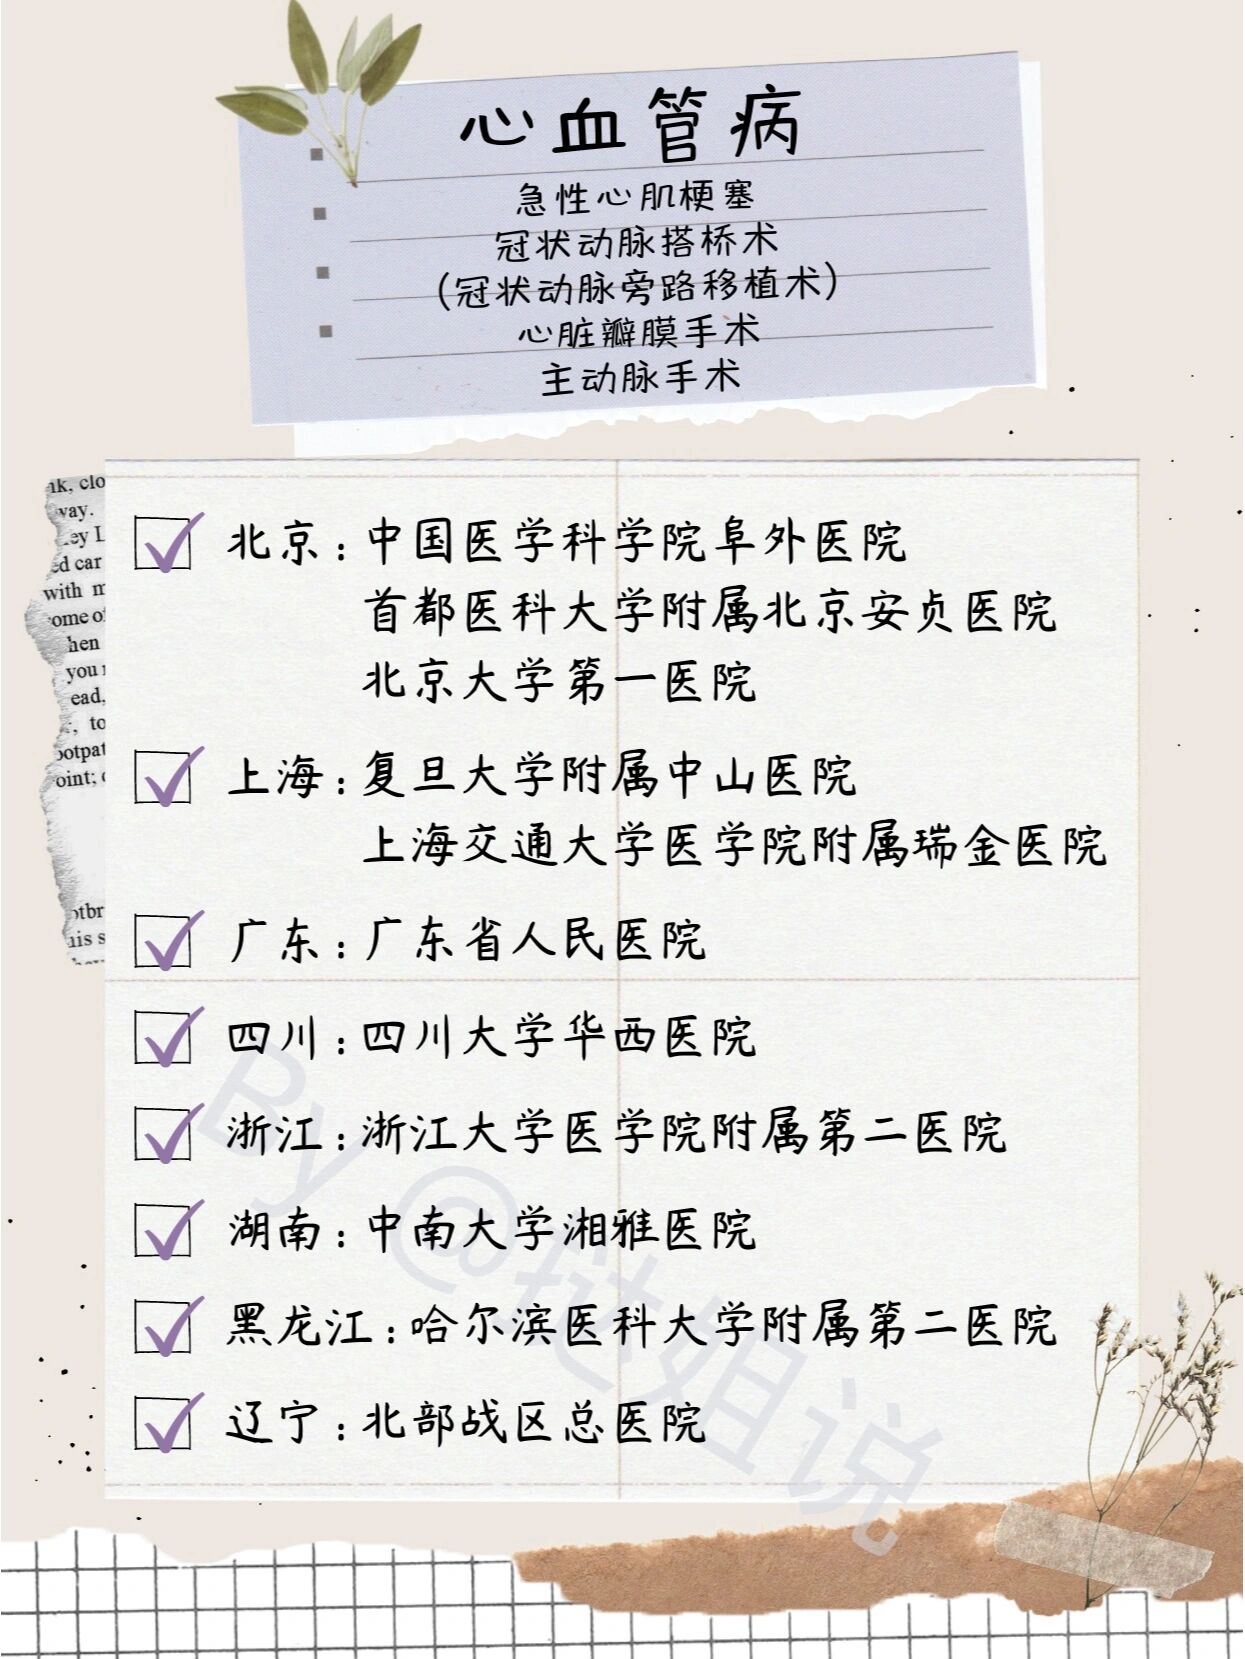 心血管病
急性心肌梗塞
冠状动脉搭桥术
(冠状动脉旁路移植术)
心脏瓣膜手术
主动脉手术
nk, clo
way.
ey L
ed car
with m
ome of
hen
you
ead,
, to
ootpat
oint;
北京:中国医学科学院阜外医院
首都医科大学附属北京安贞医院
北京大学第一医院
上海:复旦大学附属中山医院
上海交通大学医学院附属瑞金医院
otbr
his s
广东:广东省人民医院
四川:四川大学华西医院
浙江:浙江大学医学院附属第二医院
湖南:中南大学湘雅医院
黑龙江:哈尔滨医科大学附属第二医院
辽宁:北部战区总医院
By @挞姐说